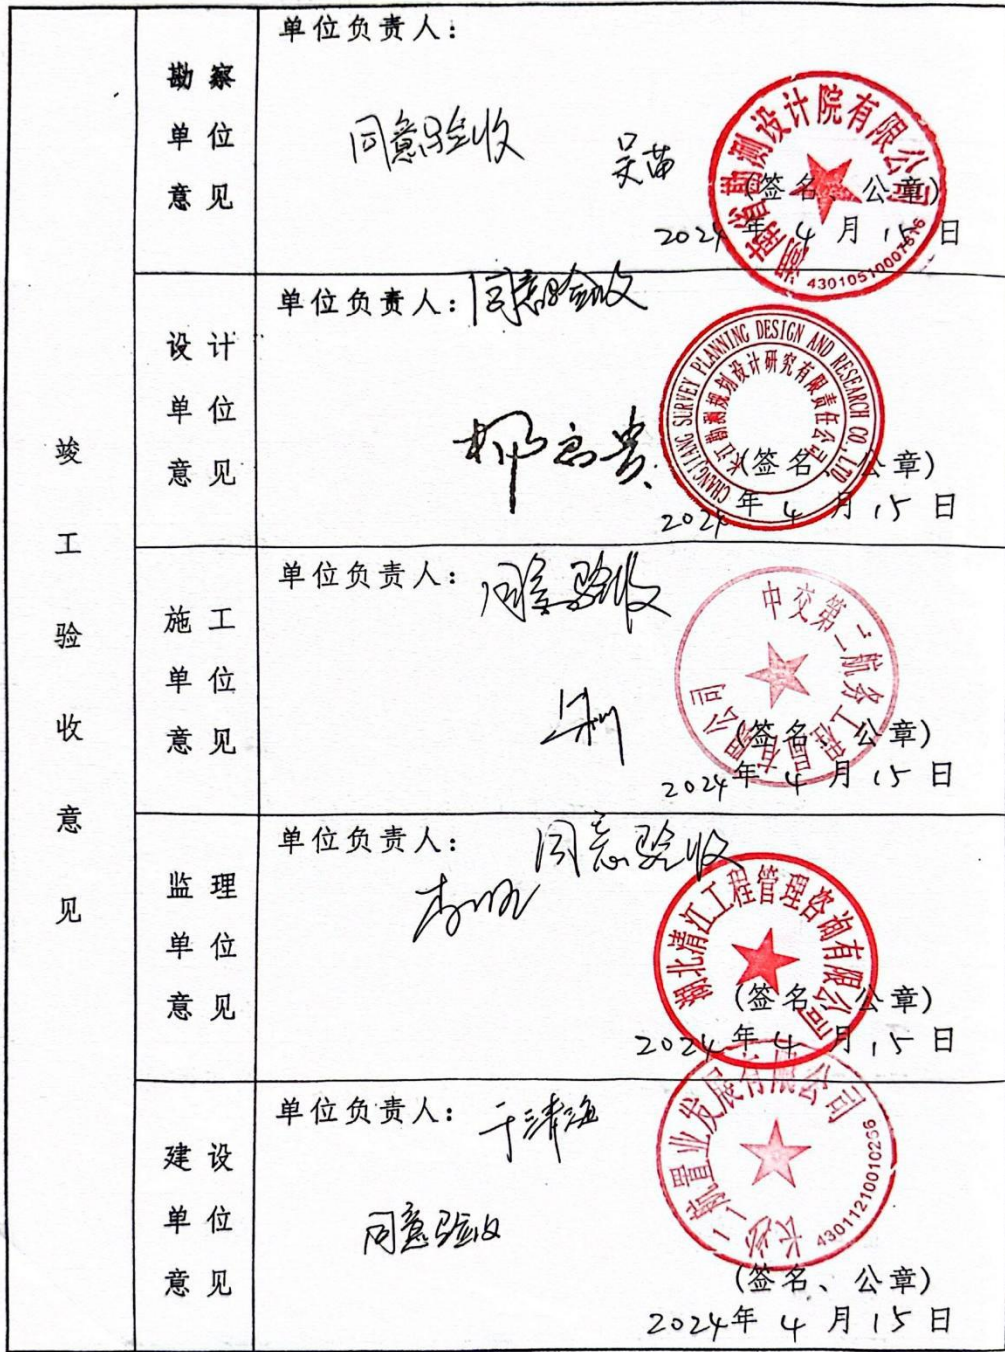 竣工验收意见
勘察单位意见
单位负责人：
同意验收
吴苗
湖南省勘测设计院有限公司
(签名、公章)
2024年4月15日
设计单位意见
单位负责人：同意验收
CHANGJIANG SURVEY PLANNING DESIGN AND RESEARCH CO., LTD
长江勘测规划设计研究有限责任公司
(签名、公章)
2024年4月15日
施工单位意见
单位负责人：同意验收
中交第二航务工程局有限公司
(签名、公章)
2024年4月15日
监理单位意见
单位负责人：同意验收
湖北清江工程管理咨询有限公司
(签名、公章)
2024年4月15日
建设单位意见
单位负责人：于清海
同意验收
置业发展有限公司
43011210010256
(签名、公章)
2024年4月15日